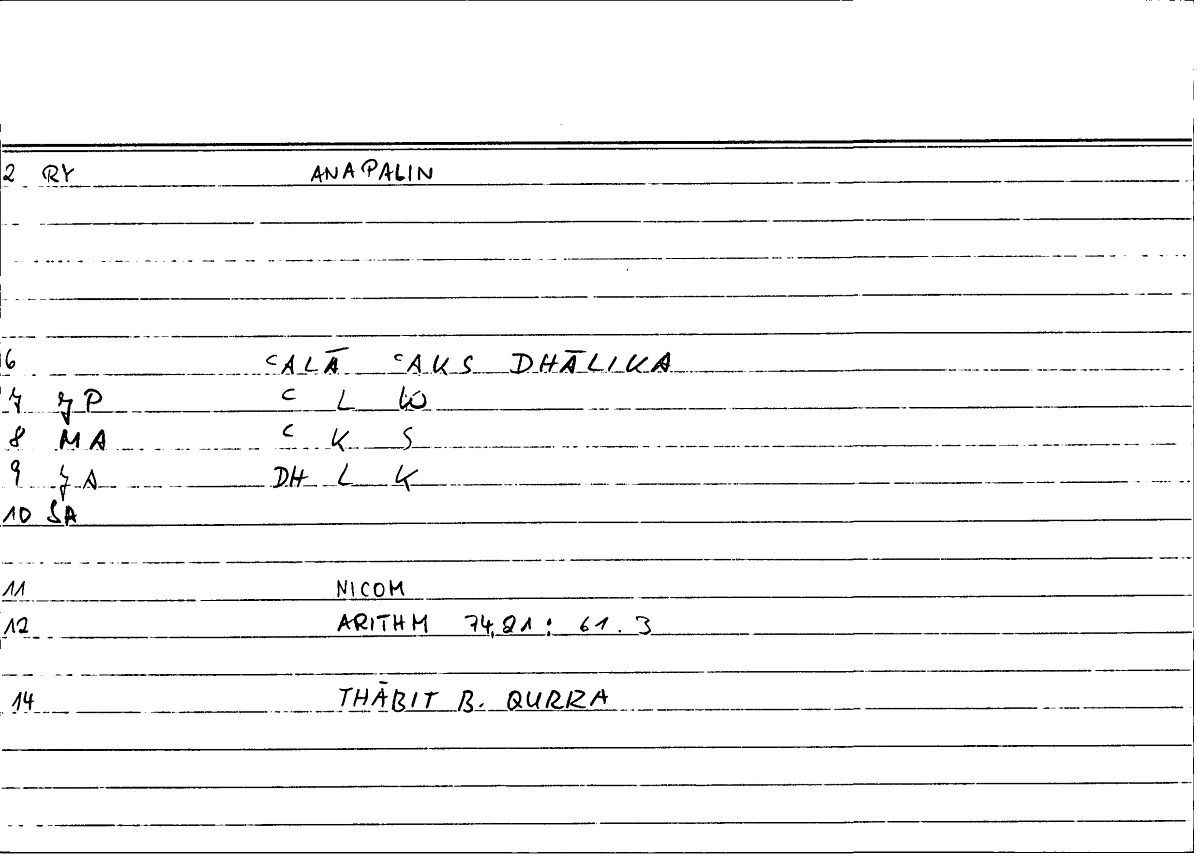 2 RY ANAPALIN
6 ʿALĀ ʿAKS DHĀLIKA
7 ZP ʿ L W
8 MA ʿ K S
9 ZA DH L K
10 SA
11 NICOM
12 ARITHM 74,21 : 61.3
14 THĀBIT B. QURRA